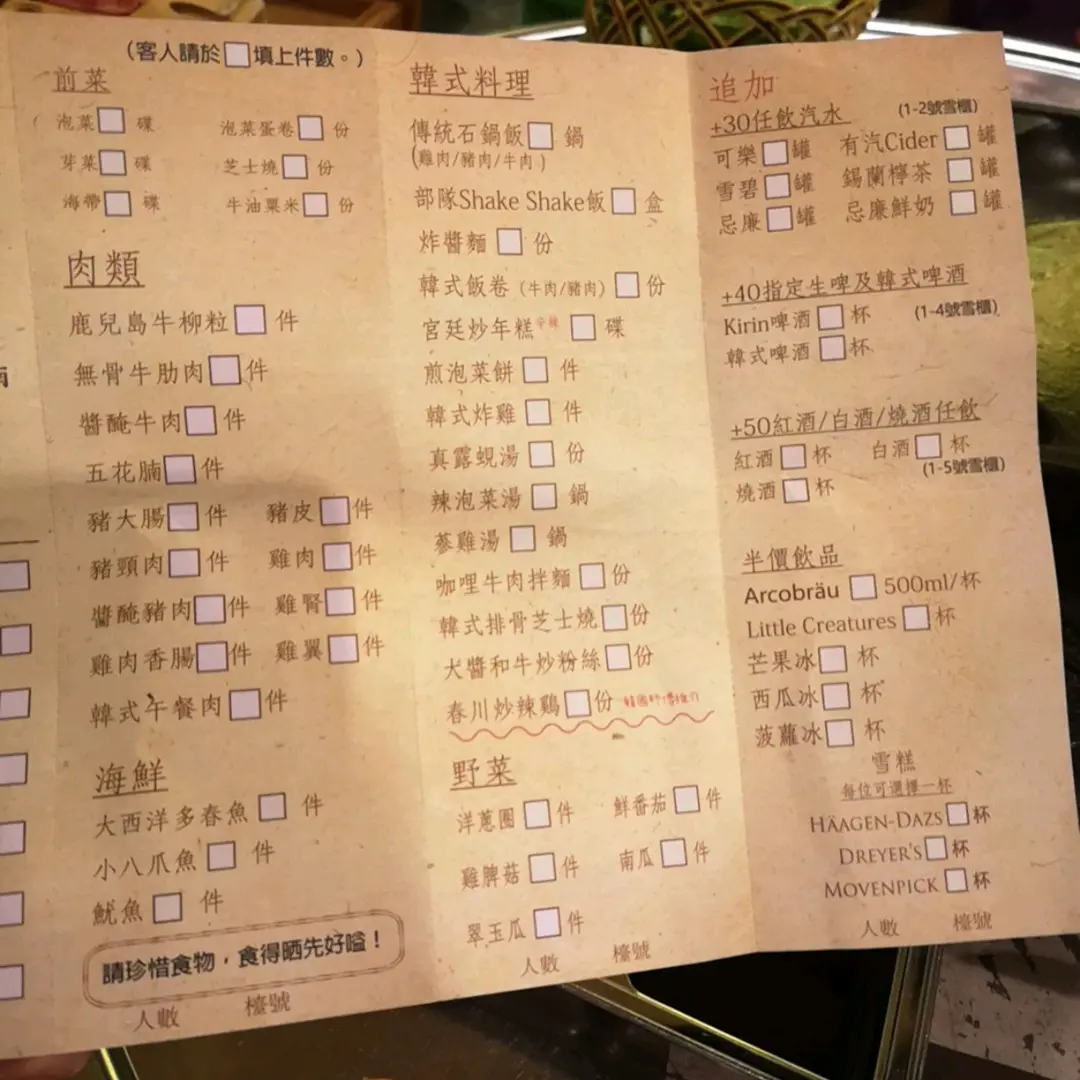 (客人請於□填上件數。)
前菜
泡菜□碟 泡菜蛋卷□份
芽菜□碟 芝士燒□份
海帶□碟 牛油粟米□份
肉類
鹿兒島牛柳粒□件
無骨牛肋肉□件
醬醃牛肉□件
五花腩□件
豬大腸□件 豬皮□件
豬頸肉□件 雞肉□件
醬醃豬肉□件 雞腎□件
雞肉香腸□件 雞翼□件
韓式午餐肉□件
海鮮
大西洋多春魚□件
小八爪魚□件
魷魚□件
請珍惜食物，食得晒先好嗌！
人數 檯號
韓式料理
傳統石鍋飯□鍋
(雞肉/豬肉/牛肉)
部隊Shake Shake飯□盒
炸醬麵□份
韓式飯卷 (牛肉/豬肉)□份
宮廷炒年糕辛辣□碟
煎泡菜餅□件
韓式炸雞□件
真露蜆湯□份
辣泡菜湯□鍋
蔘雞湯□鍋
咖哩牛肉拌麵□份
韓式排骨芝士燒□份
大醬和牛炒粉絲□份
春川炒辣鷄□份
野菜
洋蔥圈□件 鮮番茄□件
雞脾菇□件 南瓜□件
翠玉瓜□件
人數 檯號
追加
+30任飲汽水 (1-2號雪櫃)
可樂□罐 有汽Cider□罐
雪碧□罐 錫蘭檸茶□罐
忌廉□罐 忌廉鮮奶□罐
+40指定生啤及韓式啤酒
Kirin啤酒□杯 (1-4號雪櫃)
韓式啤酒□杯
+50紅酒/白酒/燒酒任飲
紅酒□杯 白酒□杯
燒酒□杯 (1-5號雪櫃)
半價飲品
Arcobräu□500ml/杯
Little Creatures□杯
芒果冰□杯
西瓜冰□杯
菠蘿冰□杯
雪糕
每位可選擇一杯
HÄAGEN-DAZS□杯
DREYER'S□杯
MOVENPICK□杯
人數 檯號